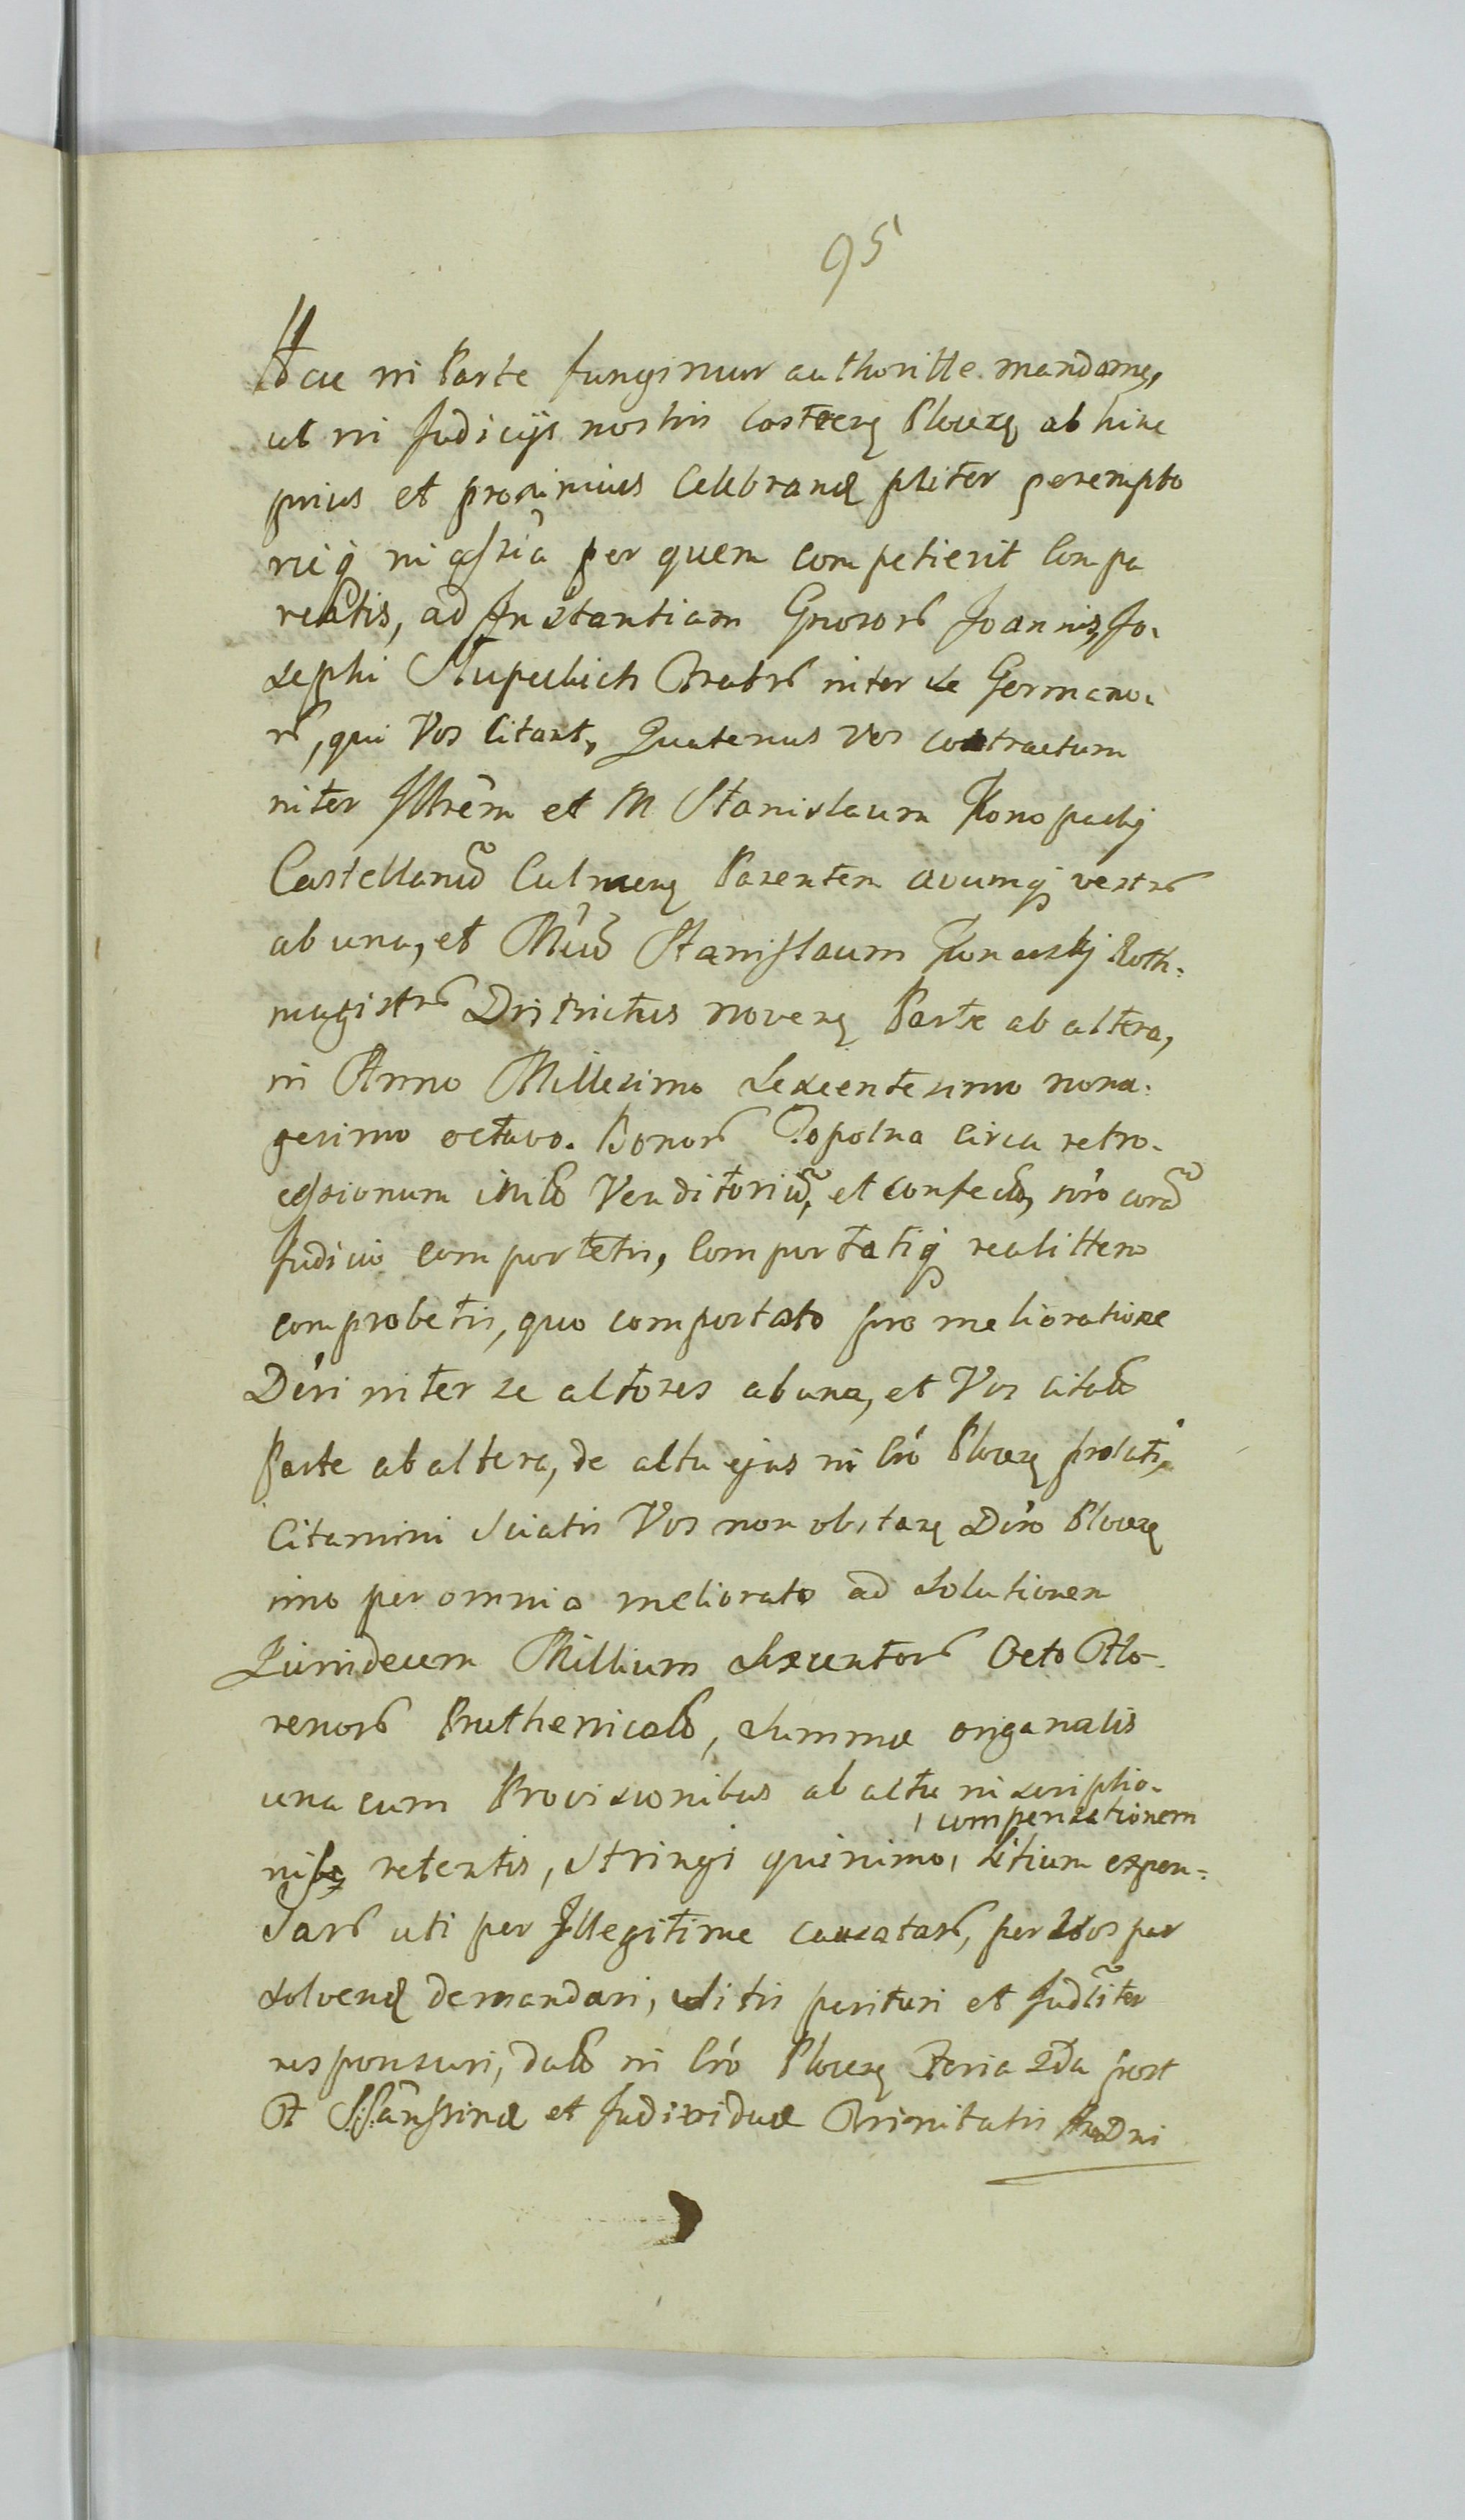 95
Hac in Parte fungimur authoritte mandamꝰ,
ut in Judicijs nostris Castren Slucen ab hinc
prius et proximius Celebrand pliter perempto
rieq in assñia per quem competierit Compa
reatis, ad Instantiam Gnosorũ Joannis, Jo-
sephi Słupeckich Fratrũ inter se Germano-
rũ, qui Vos Citant, Quatenus vos contractum
inter Illrẽm et M Stanislaum Konopackj
Castellanũ Culmen Parentem avumq vestrũ
ab una, et Mcũ Stanislaum Konarskj Roth-
magistrũ Districtus noven Parte ab altera,
in Anno Millesimo sexcentesimo nona-
gesimo octavo. Bonorũ Topolna circa retro-
cessionum initũ Venditoriũ, et confectũ, nrõ corã
Judicio comportetis, Comportatiq realittem
comprobetis, quo comportato pro melioratione
Dcri inter se actores ab una, et Vos citatos
Parte ab altera, de actu ejus in Cró Slucen prolati,
Citamini Sciatis Vos non obstan Dcró Slucen
imo per omnia meliorato ad solutionem
Quindecem Millium Sexcentorũ Octo Flo-
renorũ Pruthenicalũ, summæ originalis
una cum Provisionibus ab actu inscriptio-
compensationem
nibꝰ retentis, Stringi quinimo, litium expen-
sarũ uti per Illegitime causatarũ, per Vos per
solvend demandari, ulitis parituri et Judlĩter
responsuri, datũ in Cró Slucen Feria 2da post
F SSanssimæ et Individuæ Trinitatis AnDni